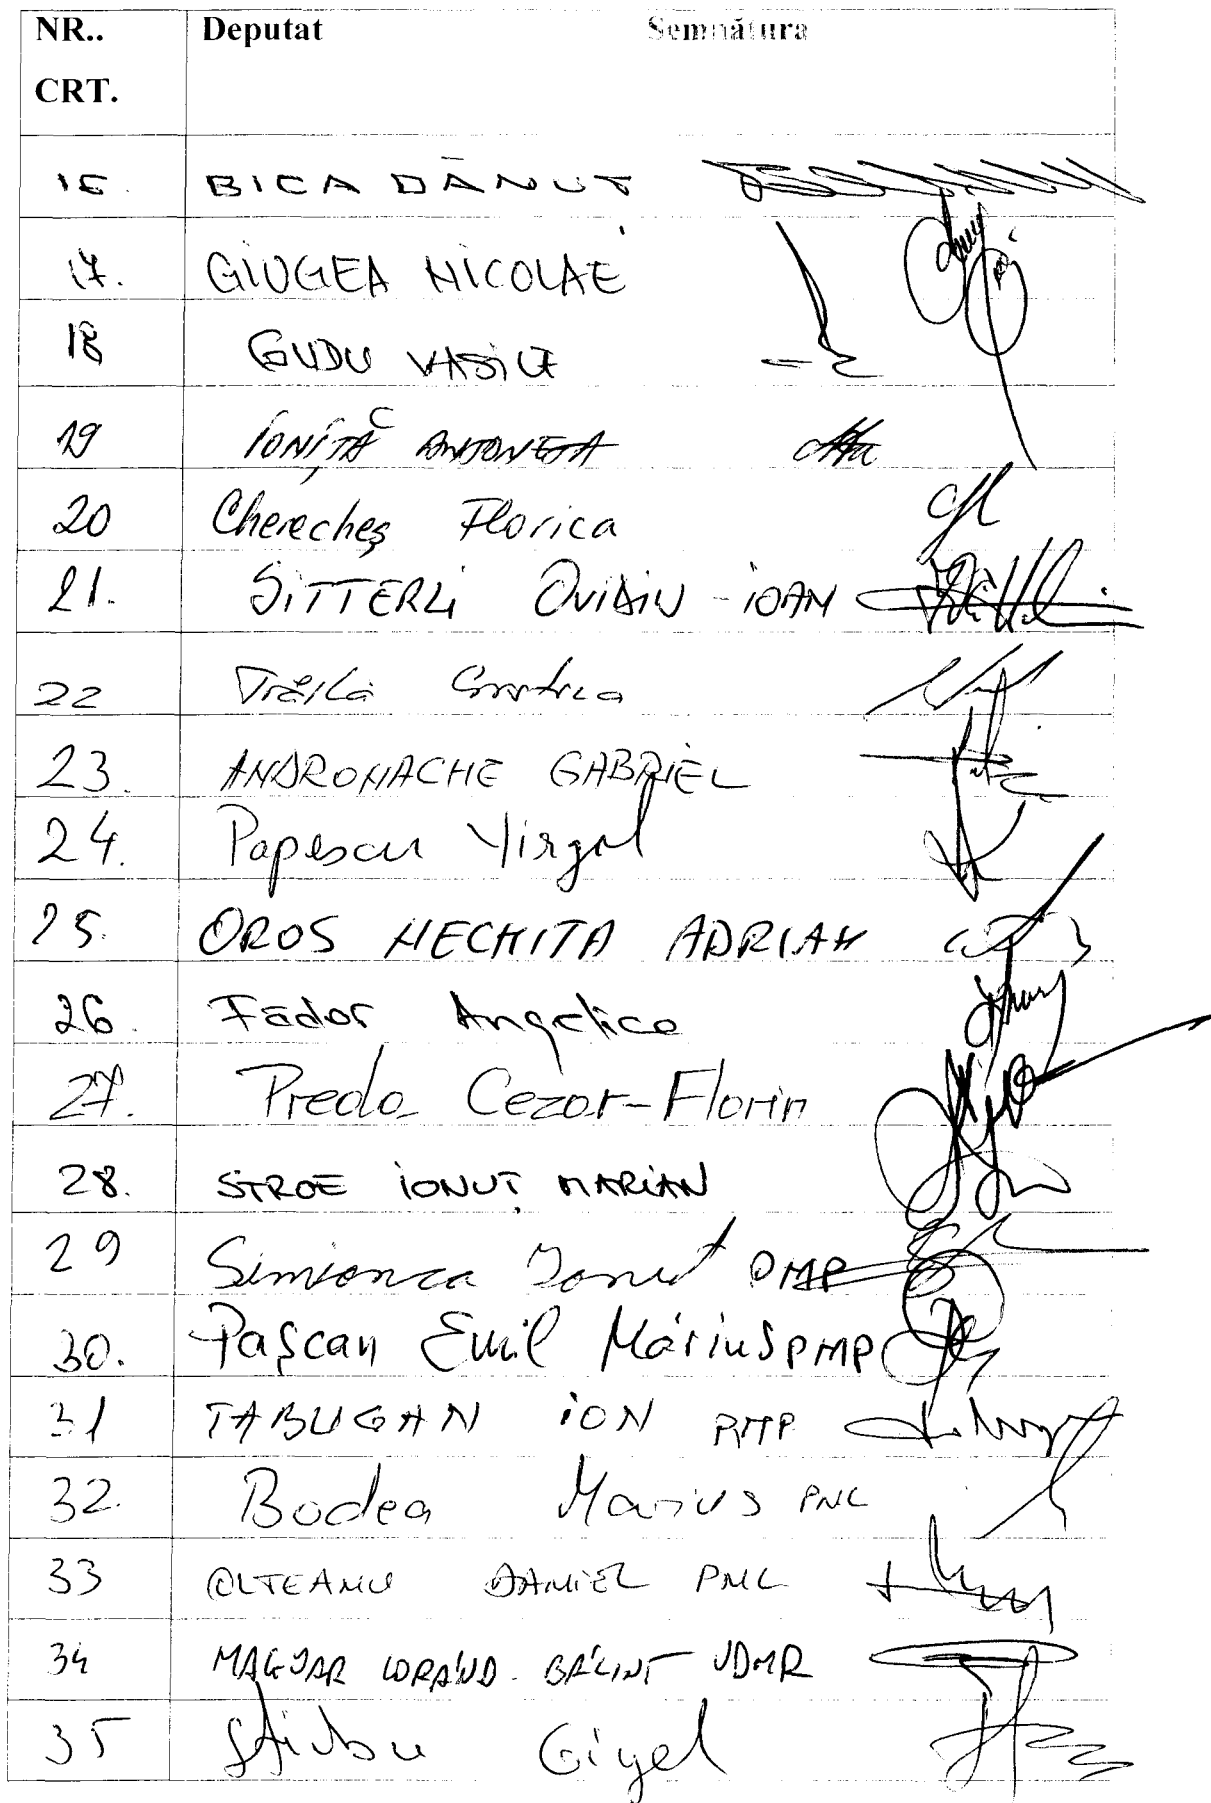 NR.. Deputat Semnătura
CRT.
16. BICA DĂNUT
17. GIUGEA NICOLAE
18 GUDU VASILE
19 IONIȚĂ ANTONETA
20 Cherecheș Florica
21. SITTERLI OVIDIU - IOAN
22 Trăilă
23. ANDRONACHE GABRIEL
24. Popescu Virgil
25. OROS NECHITA ADRIAN
26. Fădor Angelica
27. Preda Cezar-Florin
28. STROE IONUȚ MARIAN
29 Simionca Ionuț PMP
30. Pașcan Emil Márius PMP
31 TABUGAN ION PMP
32. Bodea Marius PNL
33 OLTEANU DANIEL PNL
34 MAGYAR LORÁND - BÁLINT UDMR
35 Știrbu Gigel